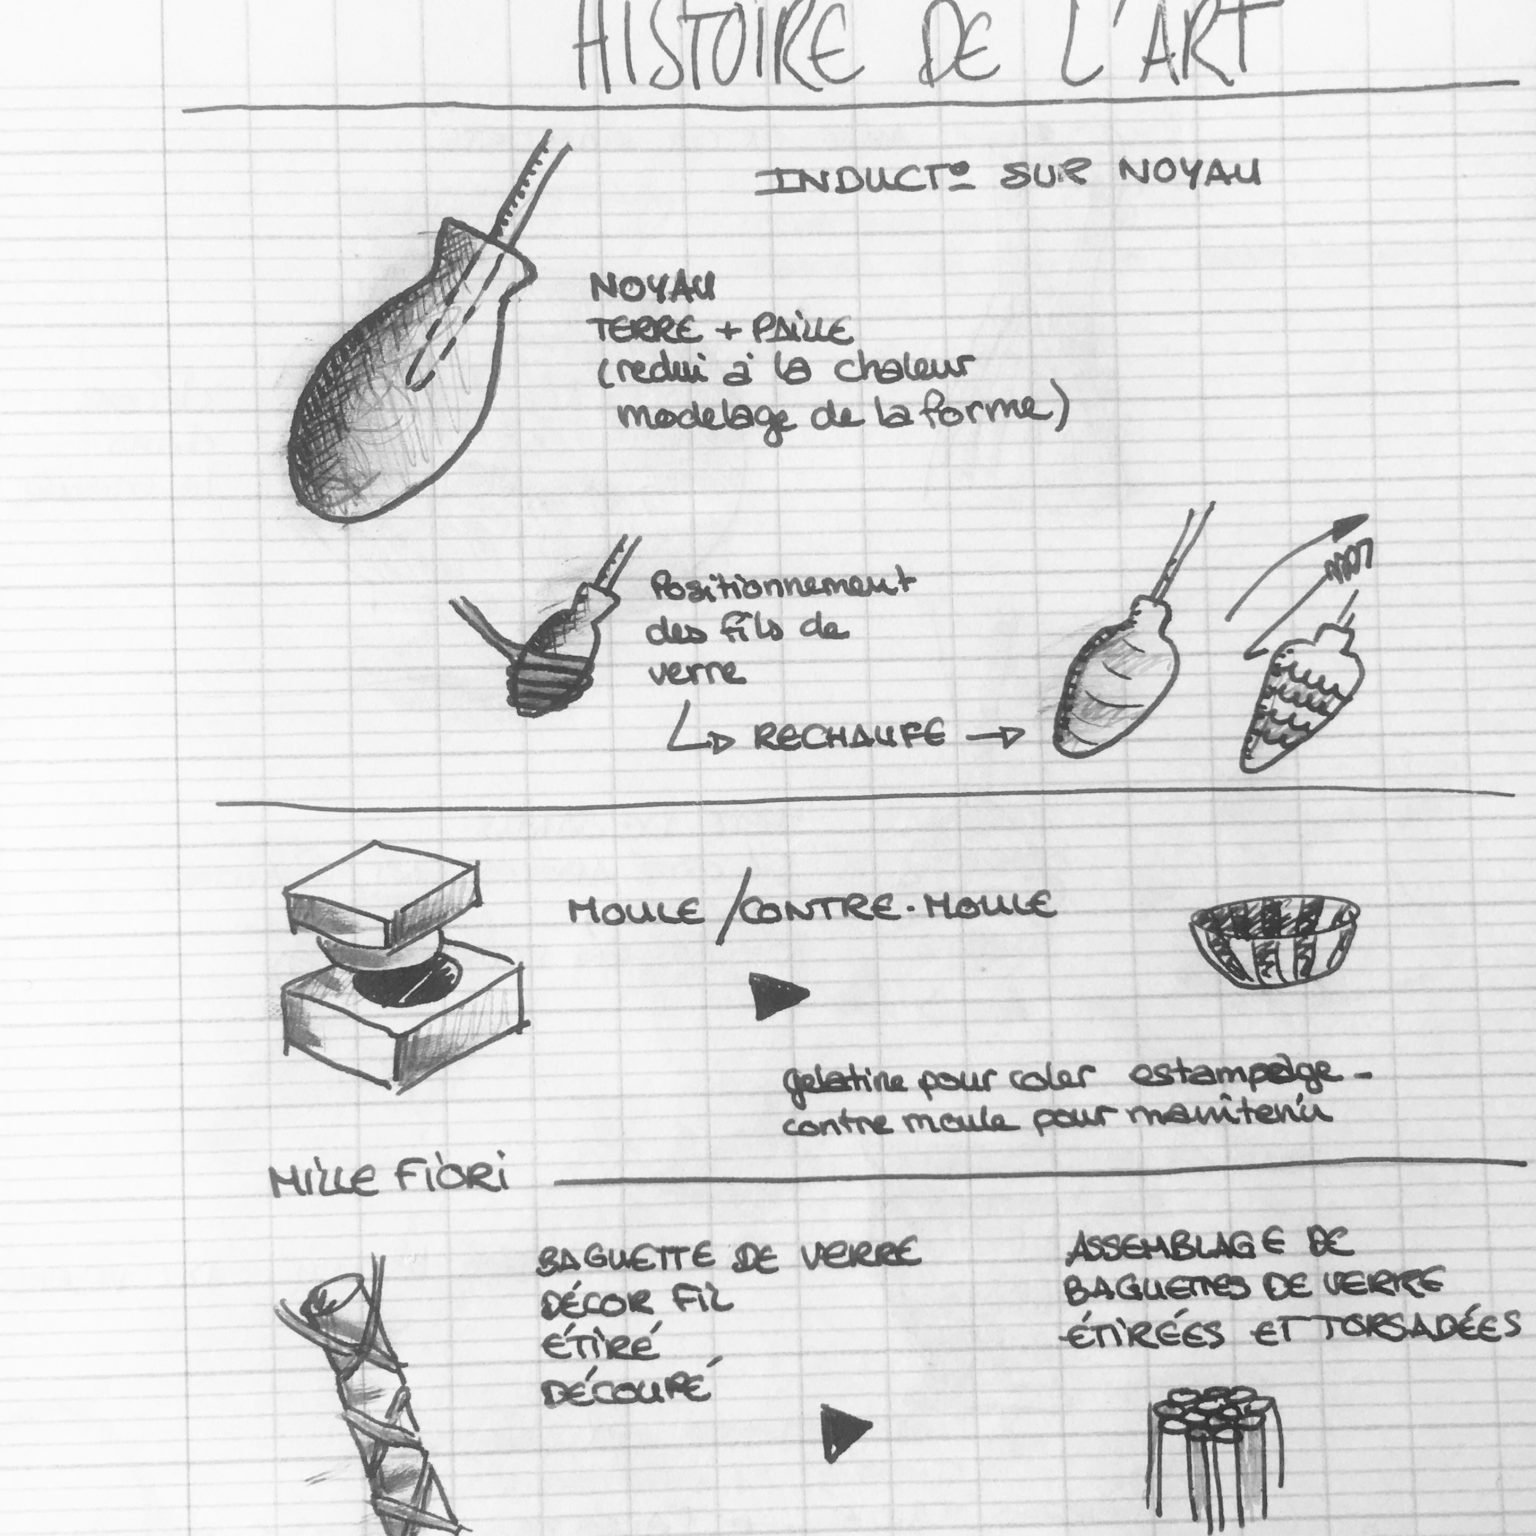 HISTOIRE DE L'ART
INDUCTº SUR NOYAU
NOYAU
TERRE + PAILLE
(redui à la chaleur
modelage de la forme)
Positionnement
des fils de
verre
RECHAUFE
MOULE / CONTRE-MOULE
gelatine pour coler estampage -
contre moule pour
MILLE FIORI
BAGUETTE DE VERRE
DÉCOR FIL
ÉTIRÉ
DÉCOUPÉ
ASSEMBLAGE DE
BAGUETTES DE VERRE
ÉTIRÉES ET TORSADÉES